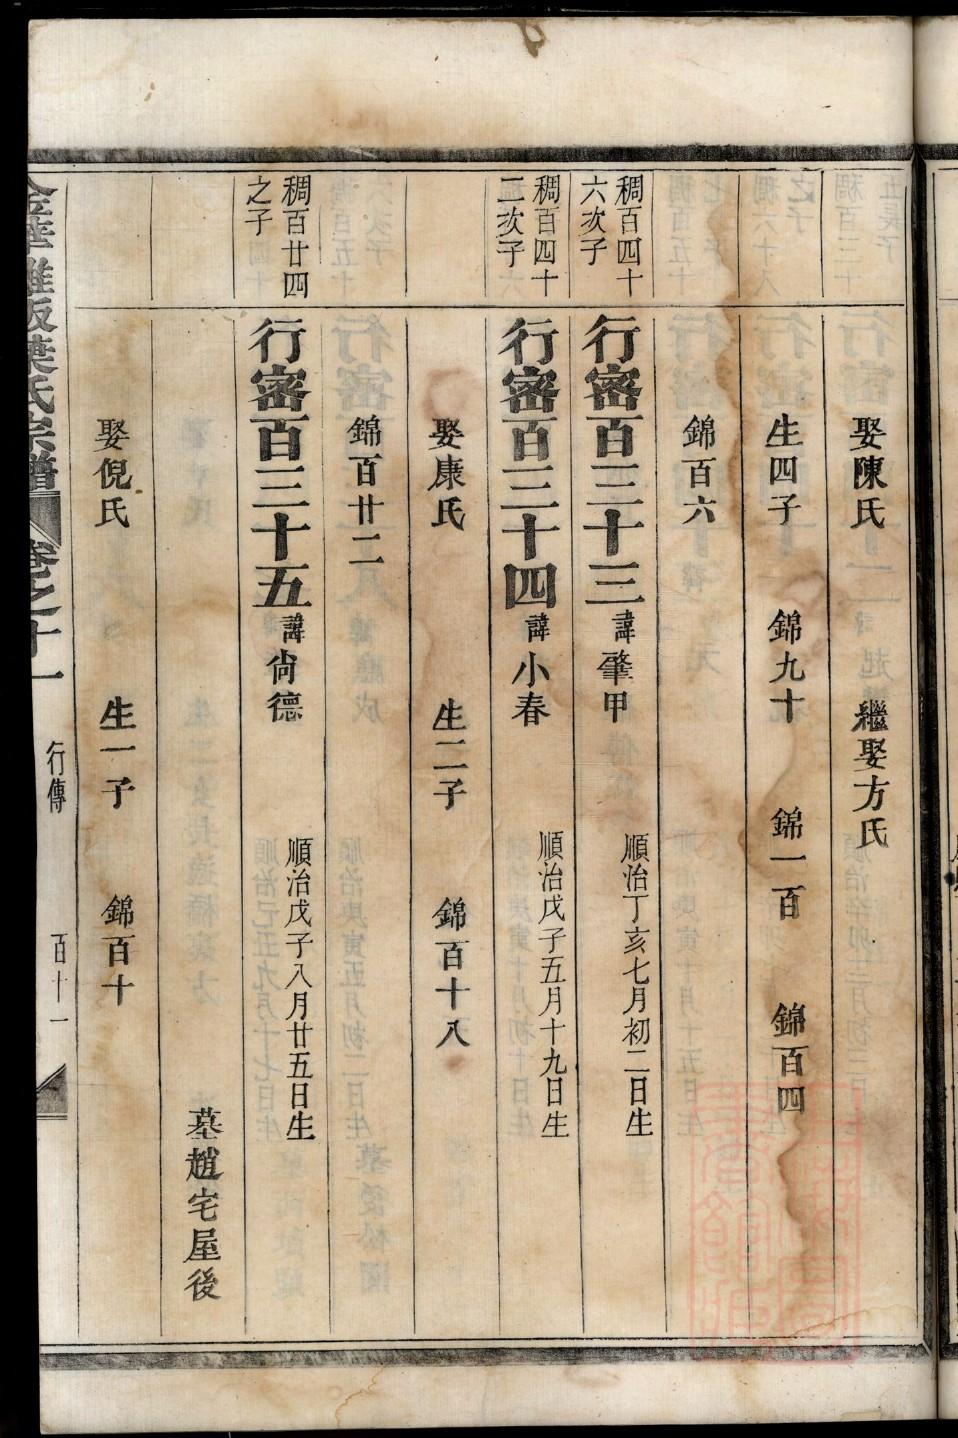 娶陳氏 繼娶方氏
生四子 錦九十 錦一百 錦百四
錦百六
稠百四十六次子
行密百三十三 諱肇甲 順治丁亥七月初二日生
稠百四十二次子
行密百三十四 諱小春 順治戊子五月十九日生
娶康氏 生二子 錦百十八
錦百廿二
稠百廿四之子
行密百三十五 諱尙德 順治戊子八月廿五日生
墓趙宅屋後
娶倪氏 生一子 錦百十
葉氏宗譜 卷之十一 行傳 百十一